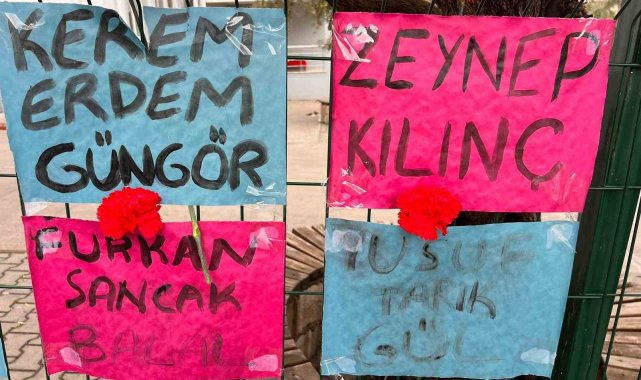 KEREM
ERDEM
GÜNGÖR
ZEYNEP
KILINÇ
FURKAN
SANCAK
BALAL
YUSUF
TARIK
GÜL